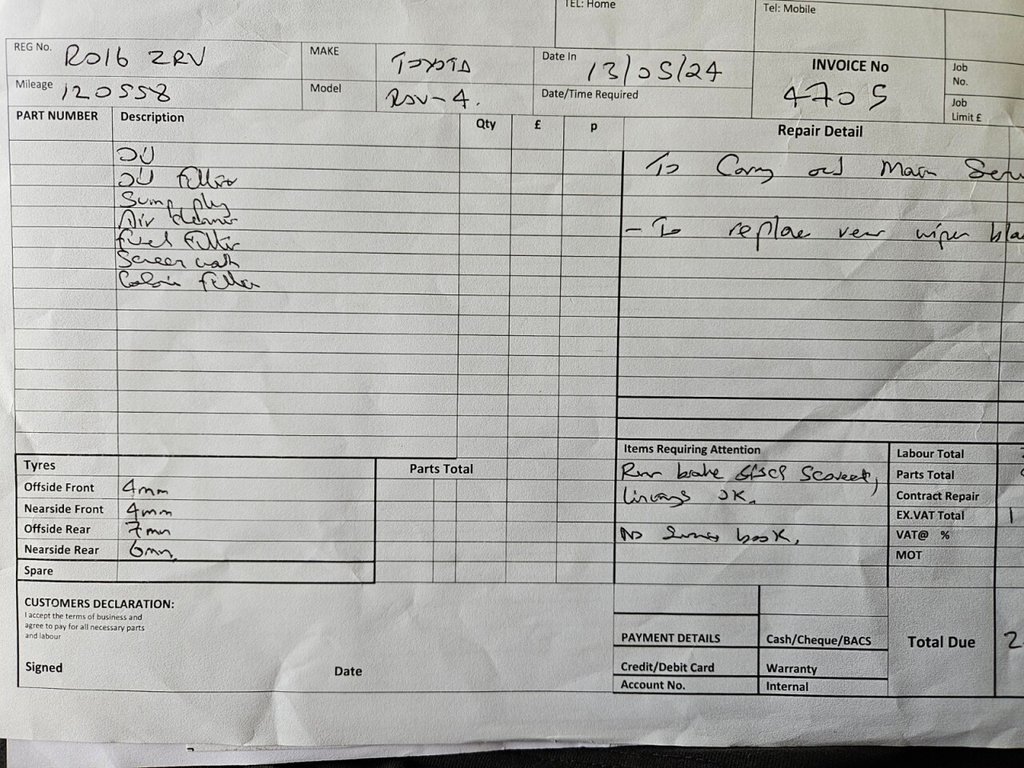 TEL: Home
Tel: Mobile
REG No. RO16 ZRV
MAKE TOYOTA
Date In 13/05/24
INVOICE No
4705
Job No.
Mileage 120558
Model RAV-4.
Date/Time Required
Job Limit £
PART NUMBER Description Qty £ p
Repair Detail
Oil
Oil Filter
Sump plug
Air cleaner
Fuel Filter
Screen wash
Cabin Filter
To Carry out Main
- To replace rear wiper bla
Tyres
Parts Total
Offside Front 4mm
Nearside Front 4mm
Offside Rear 7mm
Nearside Rear 6mm
Spare
Items Requiring Attention
Rear brake discs
linings OK.
No book,
Labour Total
Parts Total
Contract Repair
EX.VAT Total 1
VAT@ %
MOT
CUSTOMERS DECLARATION:
I accept the terms of business and
agree to pay for all necessary parts
and labour
Signed
Date
PAYMENT DETAILS Cash/Cheque/BACS
Credit/Debit Card Warranty
Account No. Internal
Total Due 2